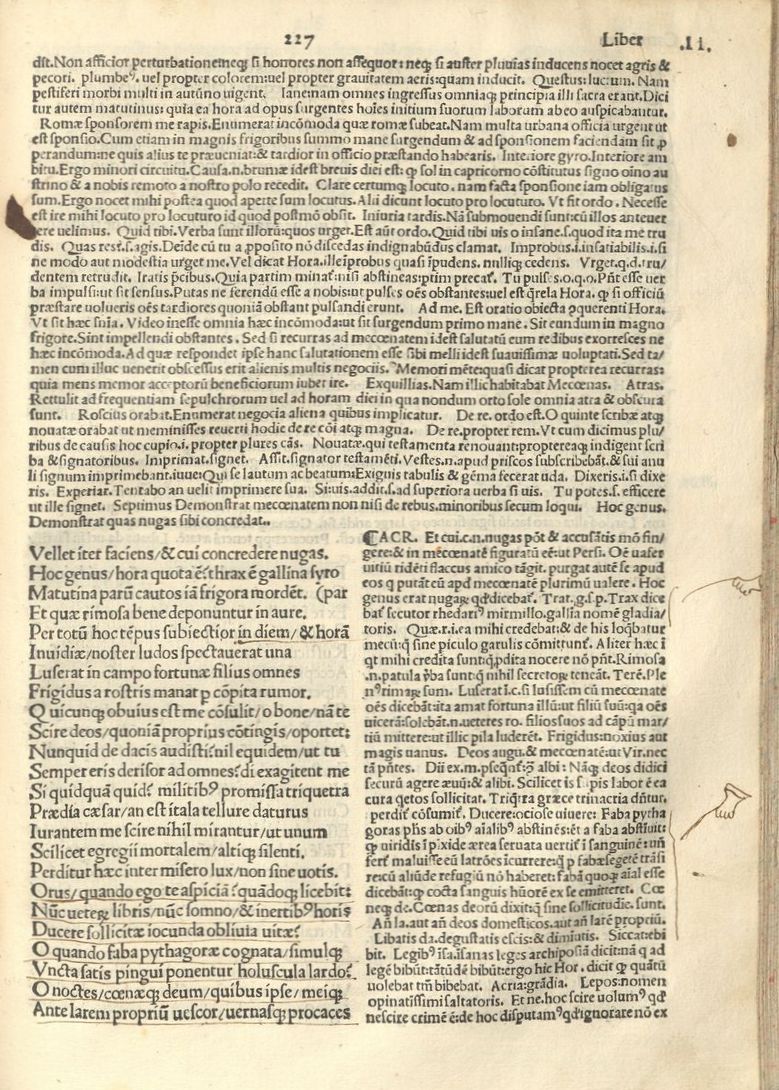 227 Liber .Ii.
dit. Non afficior perturbatione: neq; si honores non assequor: neq; si auster pluuias inducens nocet agris &
pecori. plumbeꝰ. uel propter colorem: uel propter grauitatem aeris: quam inducit. Questus: lucrum. Nam
pestiferi morbi multi in autūno uigent. Iane: nam omnes ingressus omniaq; principia illi sacra erant. Dici
tur autem matutinus: quia ea hora ad opus surgentes hoīes initium suorum laborum ab eo auspicabantur.
Romæ sponsorem me rapis. Enumerat incōmoda quæ romæ subeat. Nam multa urbana officia urgent ut
est sponsio. Cum etiam in magnis frigoribus summo mane surgendum & ad sponsionem faciendam sit ꝓ
perandum: ne quis alius te præueniat: & tardior in officio præstando habearis. Interiore gyro. Interiore am
bitu. Ergo minori circuitu. Causa .n. brumæ id est breuis diei est: ꝙ sol in capricorno cōstitutus signo oīno au
strino & a nobis remoto a nostro polo recedit. Clare certumq; locuto. nam facta sponsione iam obligatus
sum. Ergo nocet mihi postea quod aperte sum locutus. Alii dicunt locuto pro locuturo. Vt sit ordo. Necesse
est ire mihi locuto pro locuturo id quod postmō obsit. Iniuria tardis. Nā submouendi sunt: cū illos anteuer
tere uelimus. Quid tibi. Verba sunt illorū: quos urget. Est aūt ordo. Quid tibi uis o insane. s. quod ita me tru
dis. Quas res? .s. agis. Deīde cū tu a ꝓposito nō discedas indignabūdus clamat. Improbus. i. insatiabilis. i. si
ne modo aut modestia urget me. Vel dicat Hora. ille īprobus quasi īpudens. nulliq; cedens. Vrget. q. d. tru/
dentem retrudit. Iratis p̄cibus. Quia partim minat̄: nisi abstineas: ptim precat̄. Tu pulses. o. q. o. Pn̄t esse uer
ba impulsi: ut sit sensus. Putas ne ferendū esse a nobis: ut pulses oēs obstantes: uel est q̄rela Hora. ꝙ si officiū
præstare uolueris oēs tardiores quoniā obstant pulsandi erunt. Ad me. Est oratio obiecta ꝓ querenti Hora.
Vt sit hæc sn̄ia. Video inesse omnia hæc incōmoda: ut sit surgendum primo mane. Sit eundum in magno
frigore. Sint impellendi obstantes. Sed si recurras ad mecœnatem id est salutatū eum redibus exorresces ne
hæc incōmoda. Ad quæ respondet ipse hanc salutationem esse sibi melli id est suauissimæ uoluptati. Sed ta/
men cum illuc uenerit obsessus erit alienis multis negociis. Memori mēte: quasi dicat propterea recurras:
quia mens memor acceptorū beneficiorum iubet ire. Exquillias. Nam illic habitabat Mecœnas. Atras.
Rettulit ad frequentiam sepulchrorum uel ad horam diei in qua nondum orto sole omnia atra & obscura
sunt. Roscius orabat. Enumerat negocia aliena quibus implicatur. De re. ordo est. O quinte scribæ atq;
nouatæ orabat ut meminisses reuerti hodie de re cōi atq; magna. De re. propter rem. Vt cum dicimus plu/
ribus de causis hoc cupio. i. propter plures cās. Nouatæ. qui testamenta renouant: propterea q; indigent scri
ba & signatoribus. Imprimat. signet. Assit. signator testamēti. Vestes .n. apud priscos subscribebāt. & sui anu
li signum imprimebant. iuue: Qui se lautum ac beatum: Exiguis tabulis & gēma fecerat uda. Dixeris. i. si dixe
ris. Experiar. Tentabo an uelit imprimere sua. Si: uis. addit. s. ad superiora uerba si uis. Tu potes. s. efficere
ut ille signet. Septimus Demonstrat mecœnatem non nisi de rebus. minoribus secum loqui. Hoc genus.
Demonstrat quas nugas sibi concredat..
Vellet iter faciens/ & cui concredere nugas.
Hoc genus/ hora quota ē? thrax ē gallina syro
Matutina parū cautos iā frigora mordēt. (par
Et quæ rimosa bene deponuntur in aure.
Per totū hoc tēpus subiectior in diem/ & horā
Inuidiæ/ noster ludos spectauerat una
Luserat in campo fortunæ filius omnes
Frigidus a rostris manat ꝑ cōpita rumor.
Quicunq; obuius est me cōsulit/ o bone/ nā te
Scire deos/ quoniā proprius cōtingis/ oportet:
Nunquid de dacis audisti? nil equidem/ ut tu
Semper eris derisor ad omnes? di exagitent me
Si quidquā quid? militibꝰ promissa triquetra
Prædia cæsar/ an est itala tellure daturus
Iurantem me scire nihil mirantur/ ut unum
Scilicet egregii mortalem/ altiq; silenti.
Perditur hæc inter misero lux/ non sine uotis.
O rus/ quando ego te aspiciā? quādoq; licebit:
Nūc ueterꝝ libris/ nūc somno/ & inertibꝰ horis
Ducere sollicitæ iocunda obliuia uitæ?
O quando faba pythagoræ cognata/ simulq;
Vncta satis pingui ponentur holuscula lardo?
O noctes/ cœnæq; deum/ quibus ipse/ meiq;
Ante larem propriū uescor/ uernasq; procaces
¶ACR. Et cui .c. n. nugas pōt & accusatīs mō fin/
gere: & in mecœnatē figuratū eē: ut Persi. Oē uafer
uitiū ridēti flaccus amico tāgit. purgat autē se apud
eos q putāt cū apd mecœnatē plurimū ualere. Hoc
genus erat nugaꝝ: qd̓ dicebat̄. Trax. g. s. p. Trax dice
bat̄ secutor rhedariꝰ mirmillo. gallīa nomē gladia/
toris. Quæ. r. i. ea mihi credebat: & de his loq̄batur
mecū: q̄ sine piculo garulis cōmittunt̄. Aliter hæc ī
qt mihi credita sunt: q̄ ꝓdita nocere nō pn̄t. Rimosa
.n. patula v̄ba sunt: q̄ nihil secretoꝝ tenēāt. Terē. Ple
nꝰ rimaꝝ sum. Luserat i. c. si lusissem cū mecœnate
oēs dicebāt: ita amat fortuna illū: ut filiū suū: qa oēs
uicerā: solebāt .n. ueteres ro. filios suos ad cāpū mar/
tiū mittere: ut illic pila luderēt. Frigidus: noxius aut
magis uanus. Deos augu. & mecœnatē: ut Vir. nec
tā pn̄tes. Dii ex. m. pseq̄nt̄: ꝓ albi: Nāq; deos didici
securū agere æuū: & alibi. Scilicet is sup̱is labor ē ea
cura q̄etos sollicitat. Triq̄tra græce trinactria dn̄tur.
perdit̄ cōsumit̄. Ducere: ociose uiuere: Faba pytha
goras ph̄s ab oibꝰ aīalibꝰ abstinēs: ēt a faba abstīuit:
ꝙ uiridis ī pixide ærea seruata uertit̄ ī sanguinē: ut
fert̄ maluisse eū latrōes īcurrere: q̄ ꝑ fabæ segetē trāsi
re: cū aliūde refugiū nō haberet: fabā quoq; aīal esse
dicebāt: ꝙ cocta sanguis hūorē ex se emitteret. Cœ
neq; de. Cœnas deorū dixit: q̄ sine sollicitudīe. sunt.
An̄ la. aut an̄ deos domesticos. aut an̄ larē propriū.
Libatis da. degustatis escis: & dimiutis. Siccat: ebi
bit. Legibꝰ īsa. īsanas leges archiposiā dicit: nā q ad
legē bibūt: tātū dē bibūt: ergo hic Hor. dicit ꝙ quātū
uolebat tm̄ bibebat. Acria: grādia. Lepos: nomen
opinatissimi saltatoris. Et ne. hoc scire uolumꝰ qd̓
nescire crimē ē: de hoc disputamꝰ qd̓ ignorare nō ex